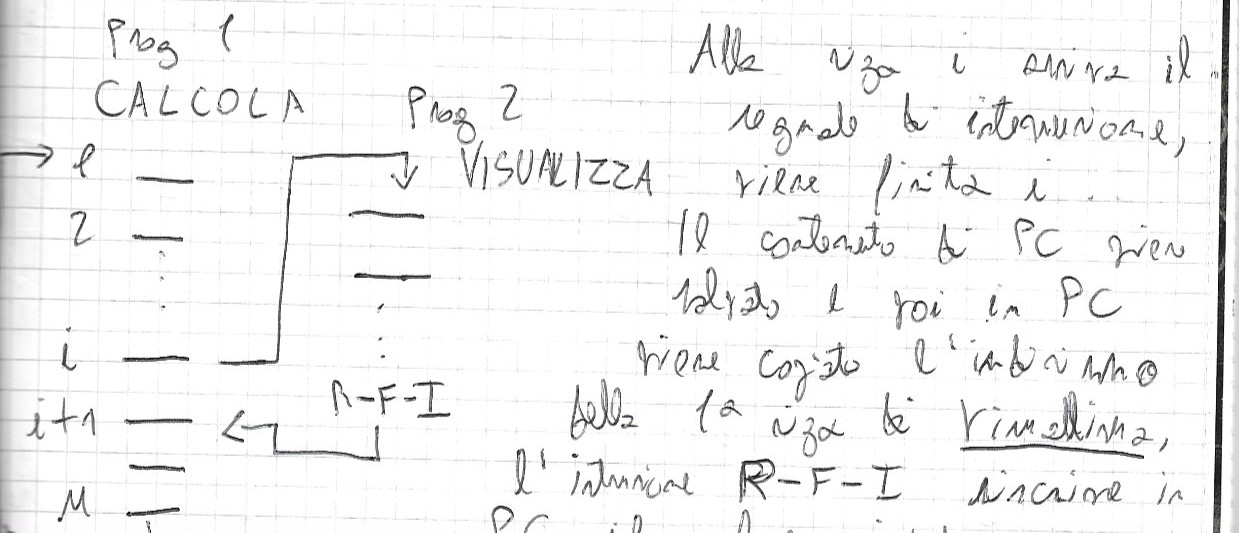 Prog 1
CALCOLA
Prog 2
VISUALIZZA
1
2
i
i+1
R-F-I
M
Alla riga i arriva il
segnale di interruzione,
viene finita i.
Il contenuto di PC viene
salvato e poi in PC
viene copiato l'indirizzo
della 1ª riga di Visualizza,
l'istruzione R-F-I riscrive in
PC